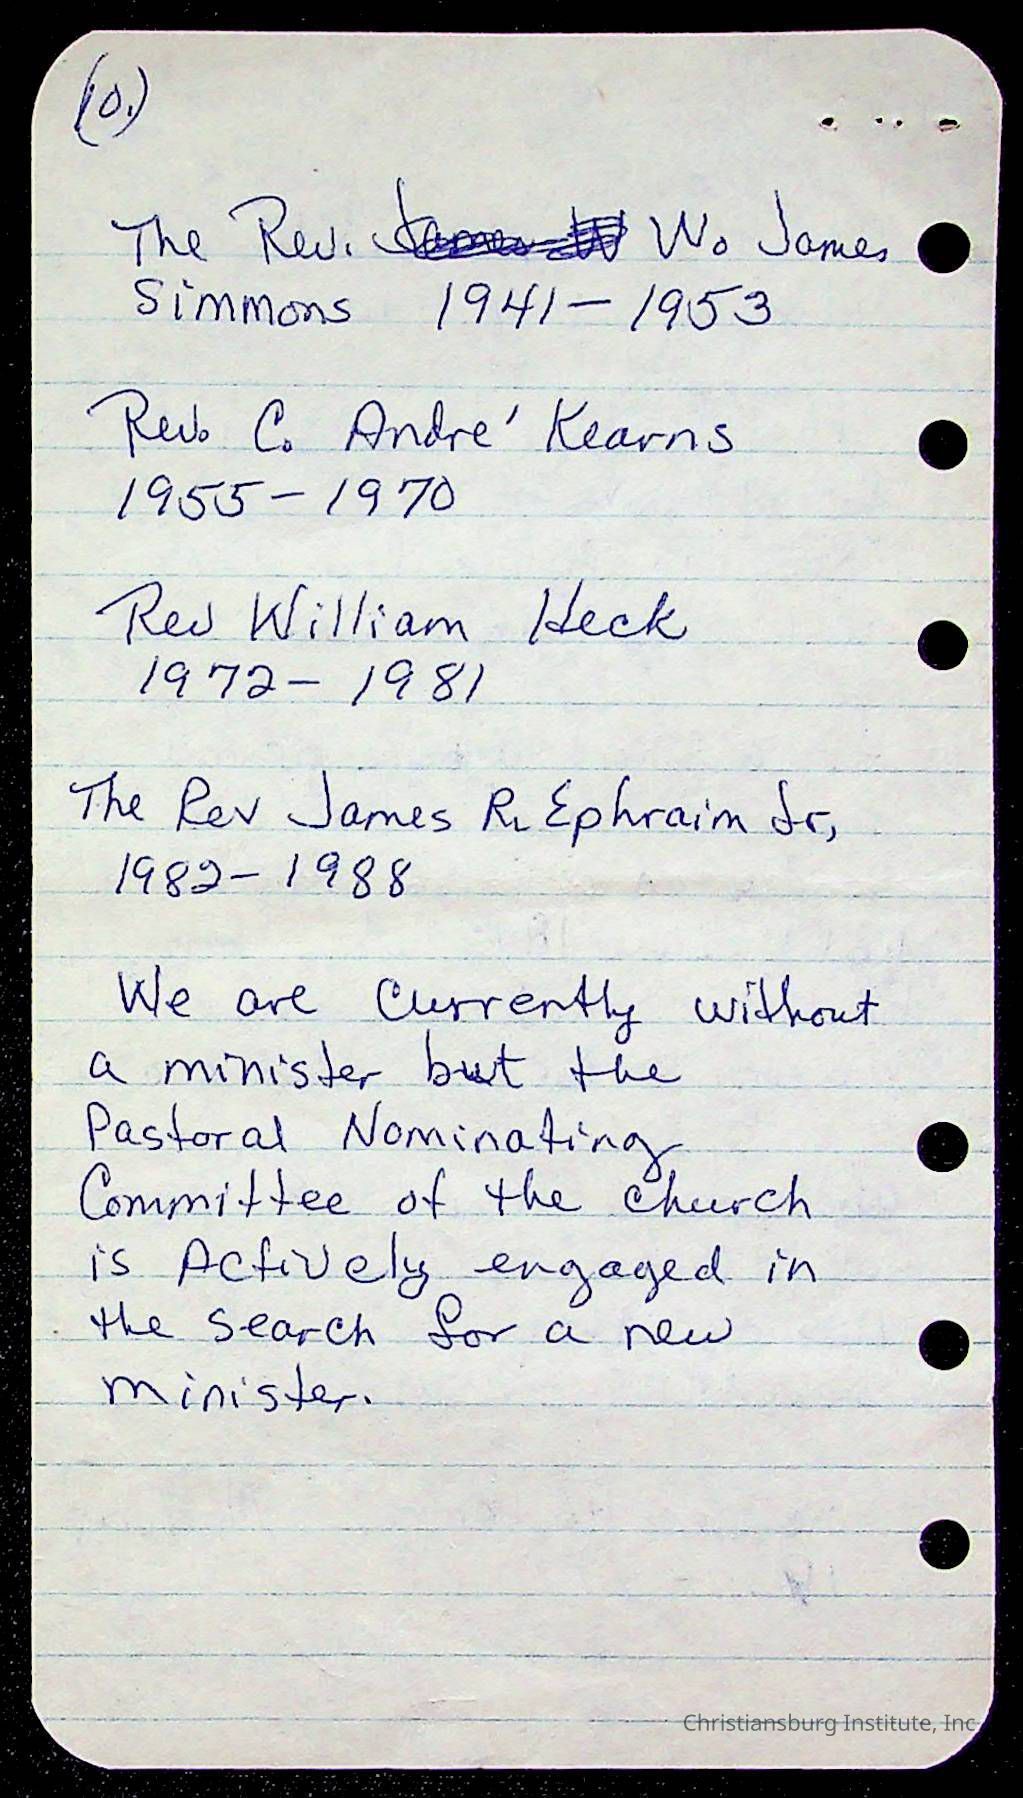 (10.)
The Rev. James W W. James
Simmons 1941-1953
Rev. C. Andre' Kearns
1955-1970
Rev William Heck
1972-1981
The Rev James R. Ephraim Jr,
1982-1988
We are Currently without
a minister but the
Pastoral Nominating
Committee of the church
is Actively engaged in
the search for a new
minister.
Christiansburg Institute, Inc